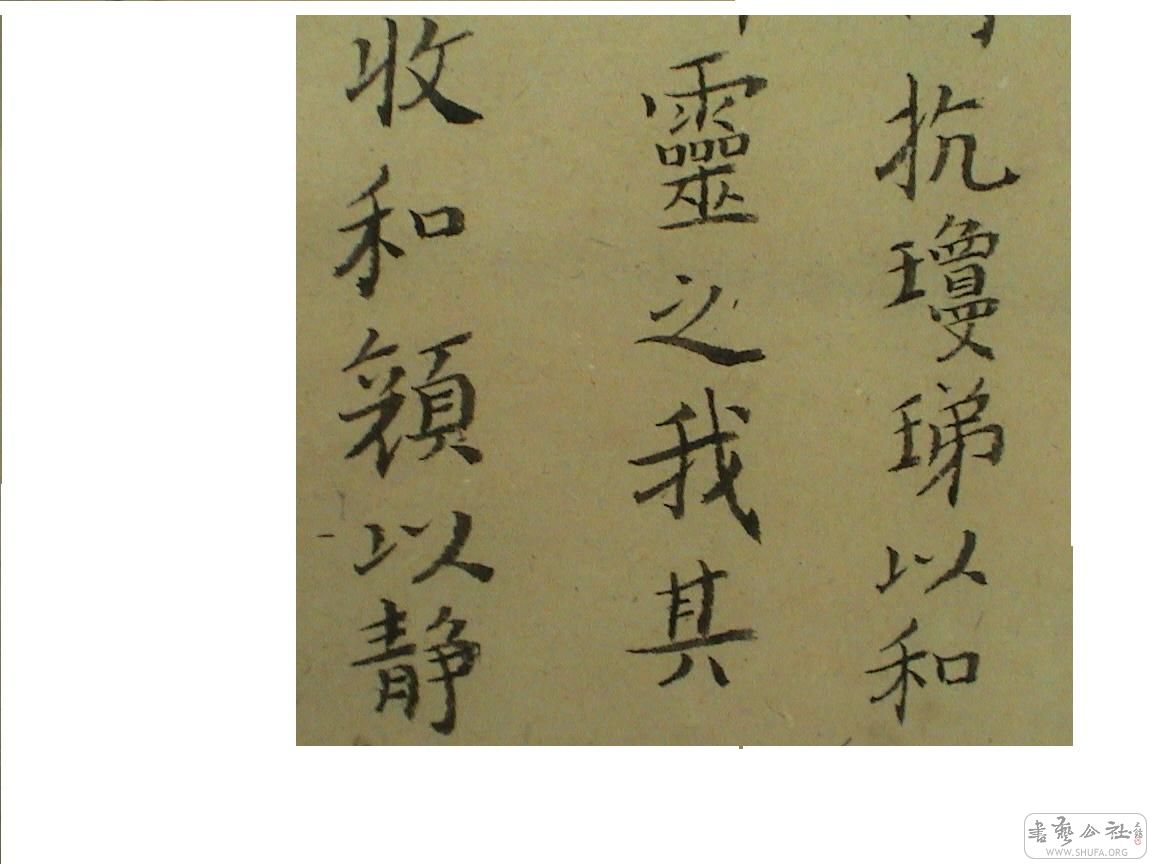 抗瓊珶以和
靈之我其
收和顏以静
書藝公社
WWW.SHUFA.ORG